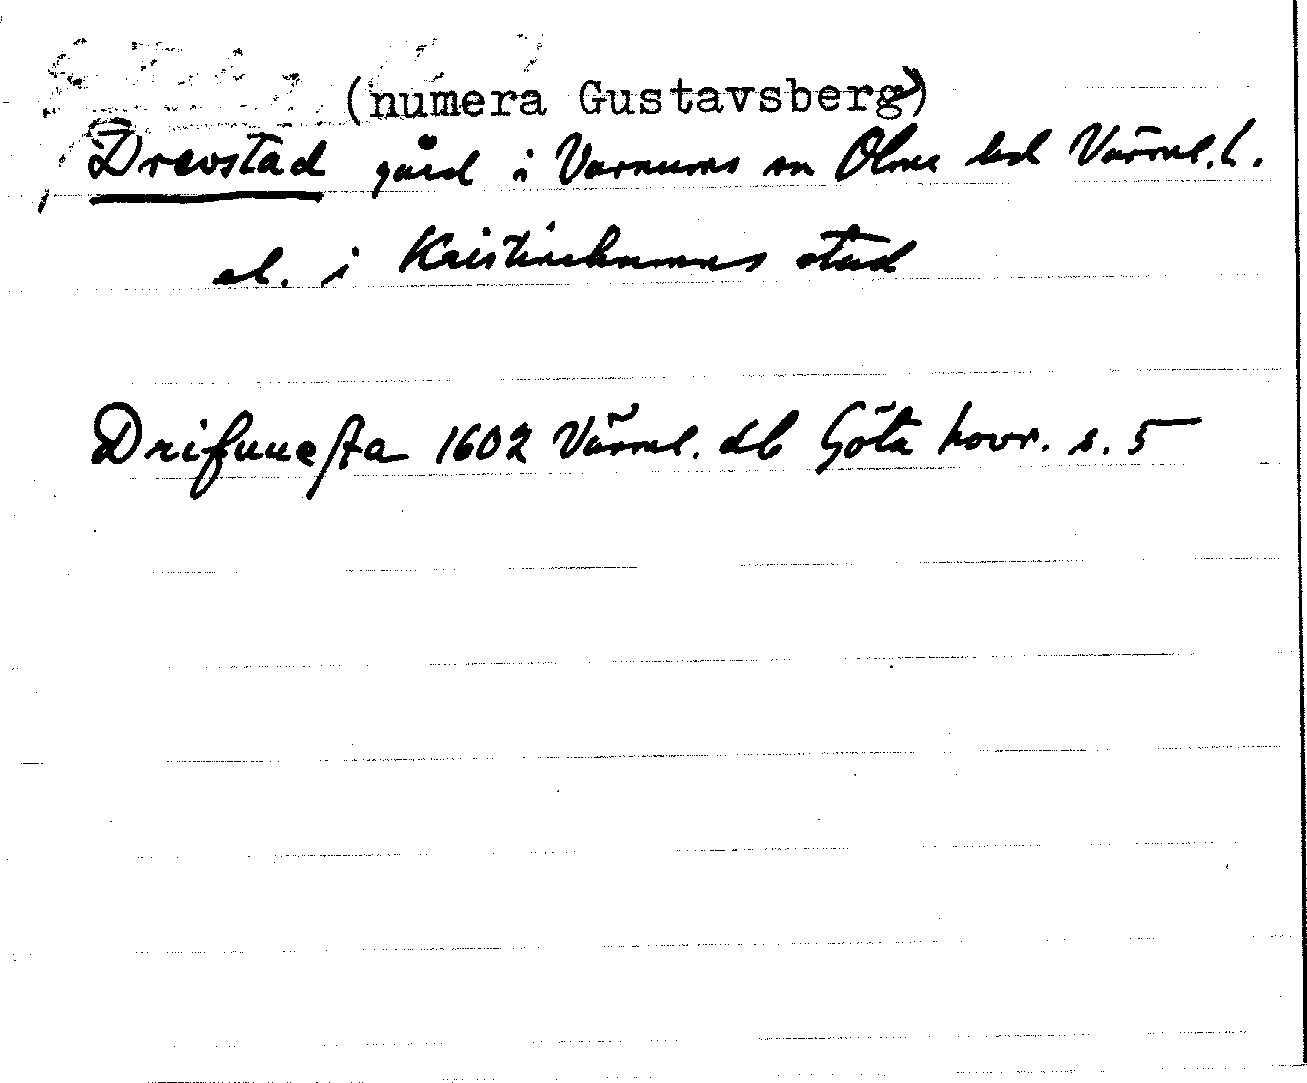 (numera Gustavsberg)
Drevstad gård i Varnums sn Ölme hd Värml. l.
el. i Kristinehamns stad
Drifunesta 1602 Värml. db Göta hovr. s. 5